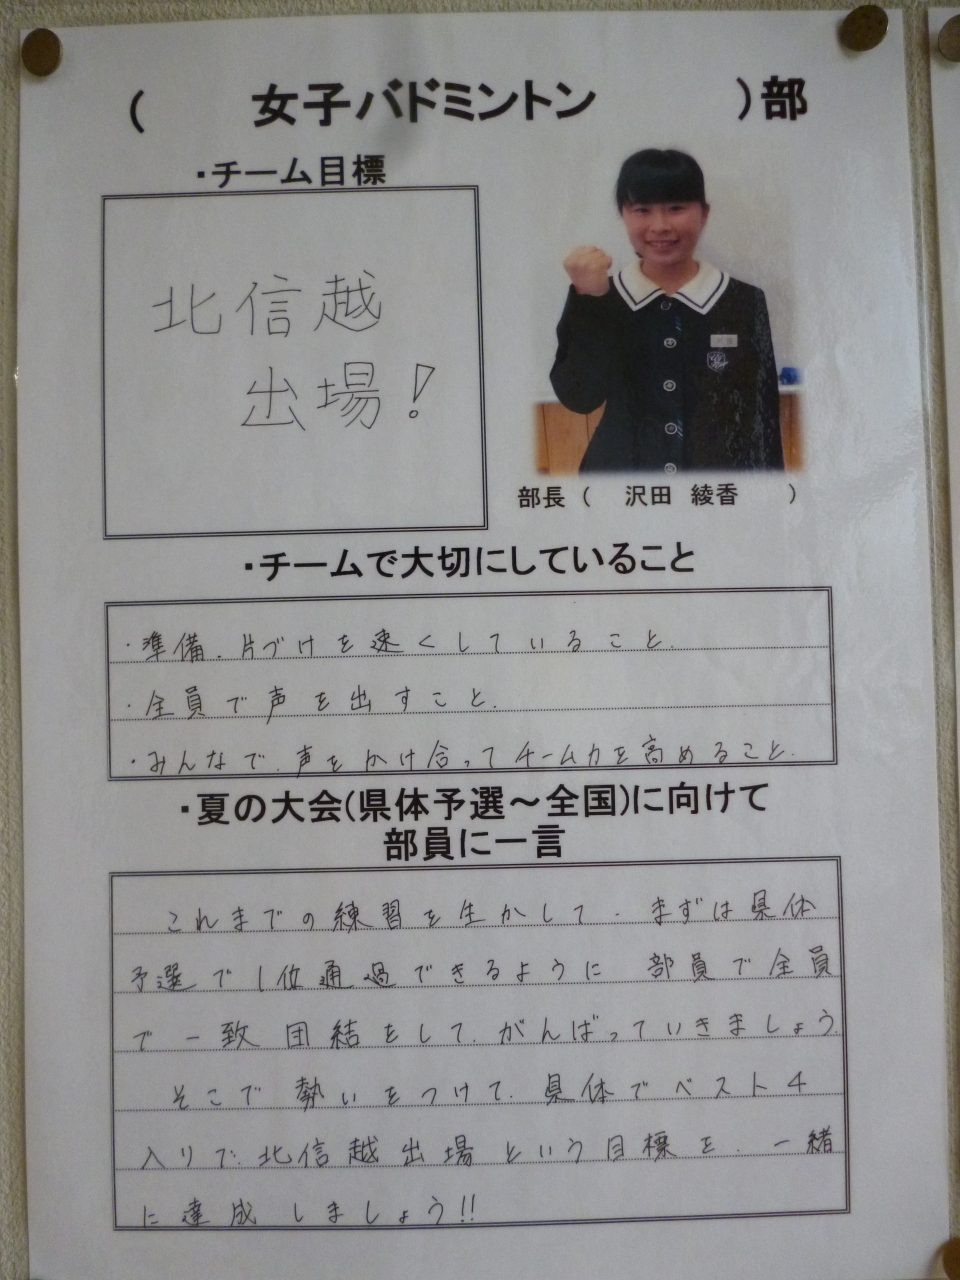 ( 女子バドミントン )部
・チーム目標
北信越
出場!
部長 ( 沢田 綾香 )
・チームで大切にしていること
・準備、片づけを速くしていること。
・全員で声を出すこと。
・みんなで、声をかけ合ってチーム力を高めること。
・夏の大会(県体予選～全国)に向けて
部員に一言
これまでの練習を生かして、まずは県体
予選で1位通過できるように 部員で全員
で一致団結をして、がんばっていきましょう。
そこで勢いをつけて、県体でベスト4
入りで、北信越出場という目標を、一緒
に達成しましょう!!